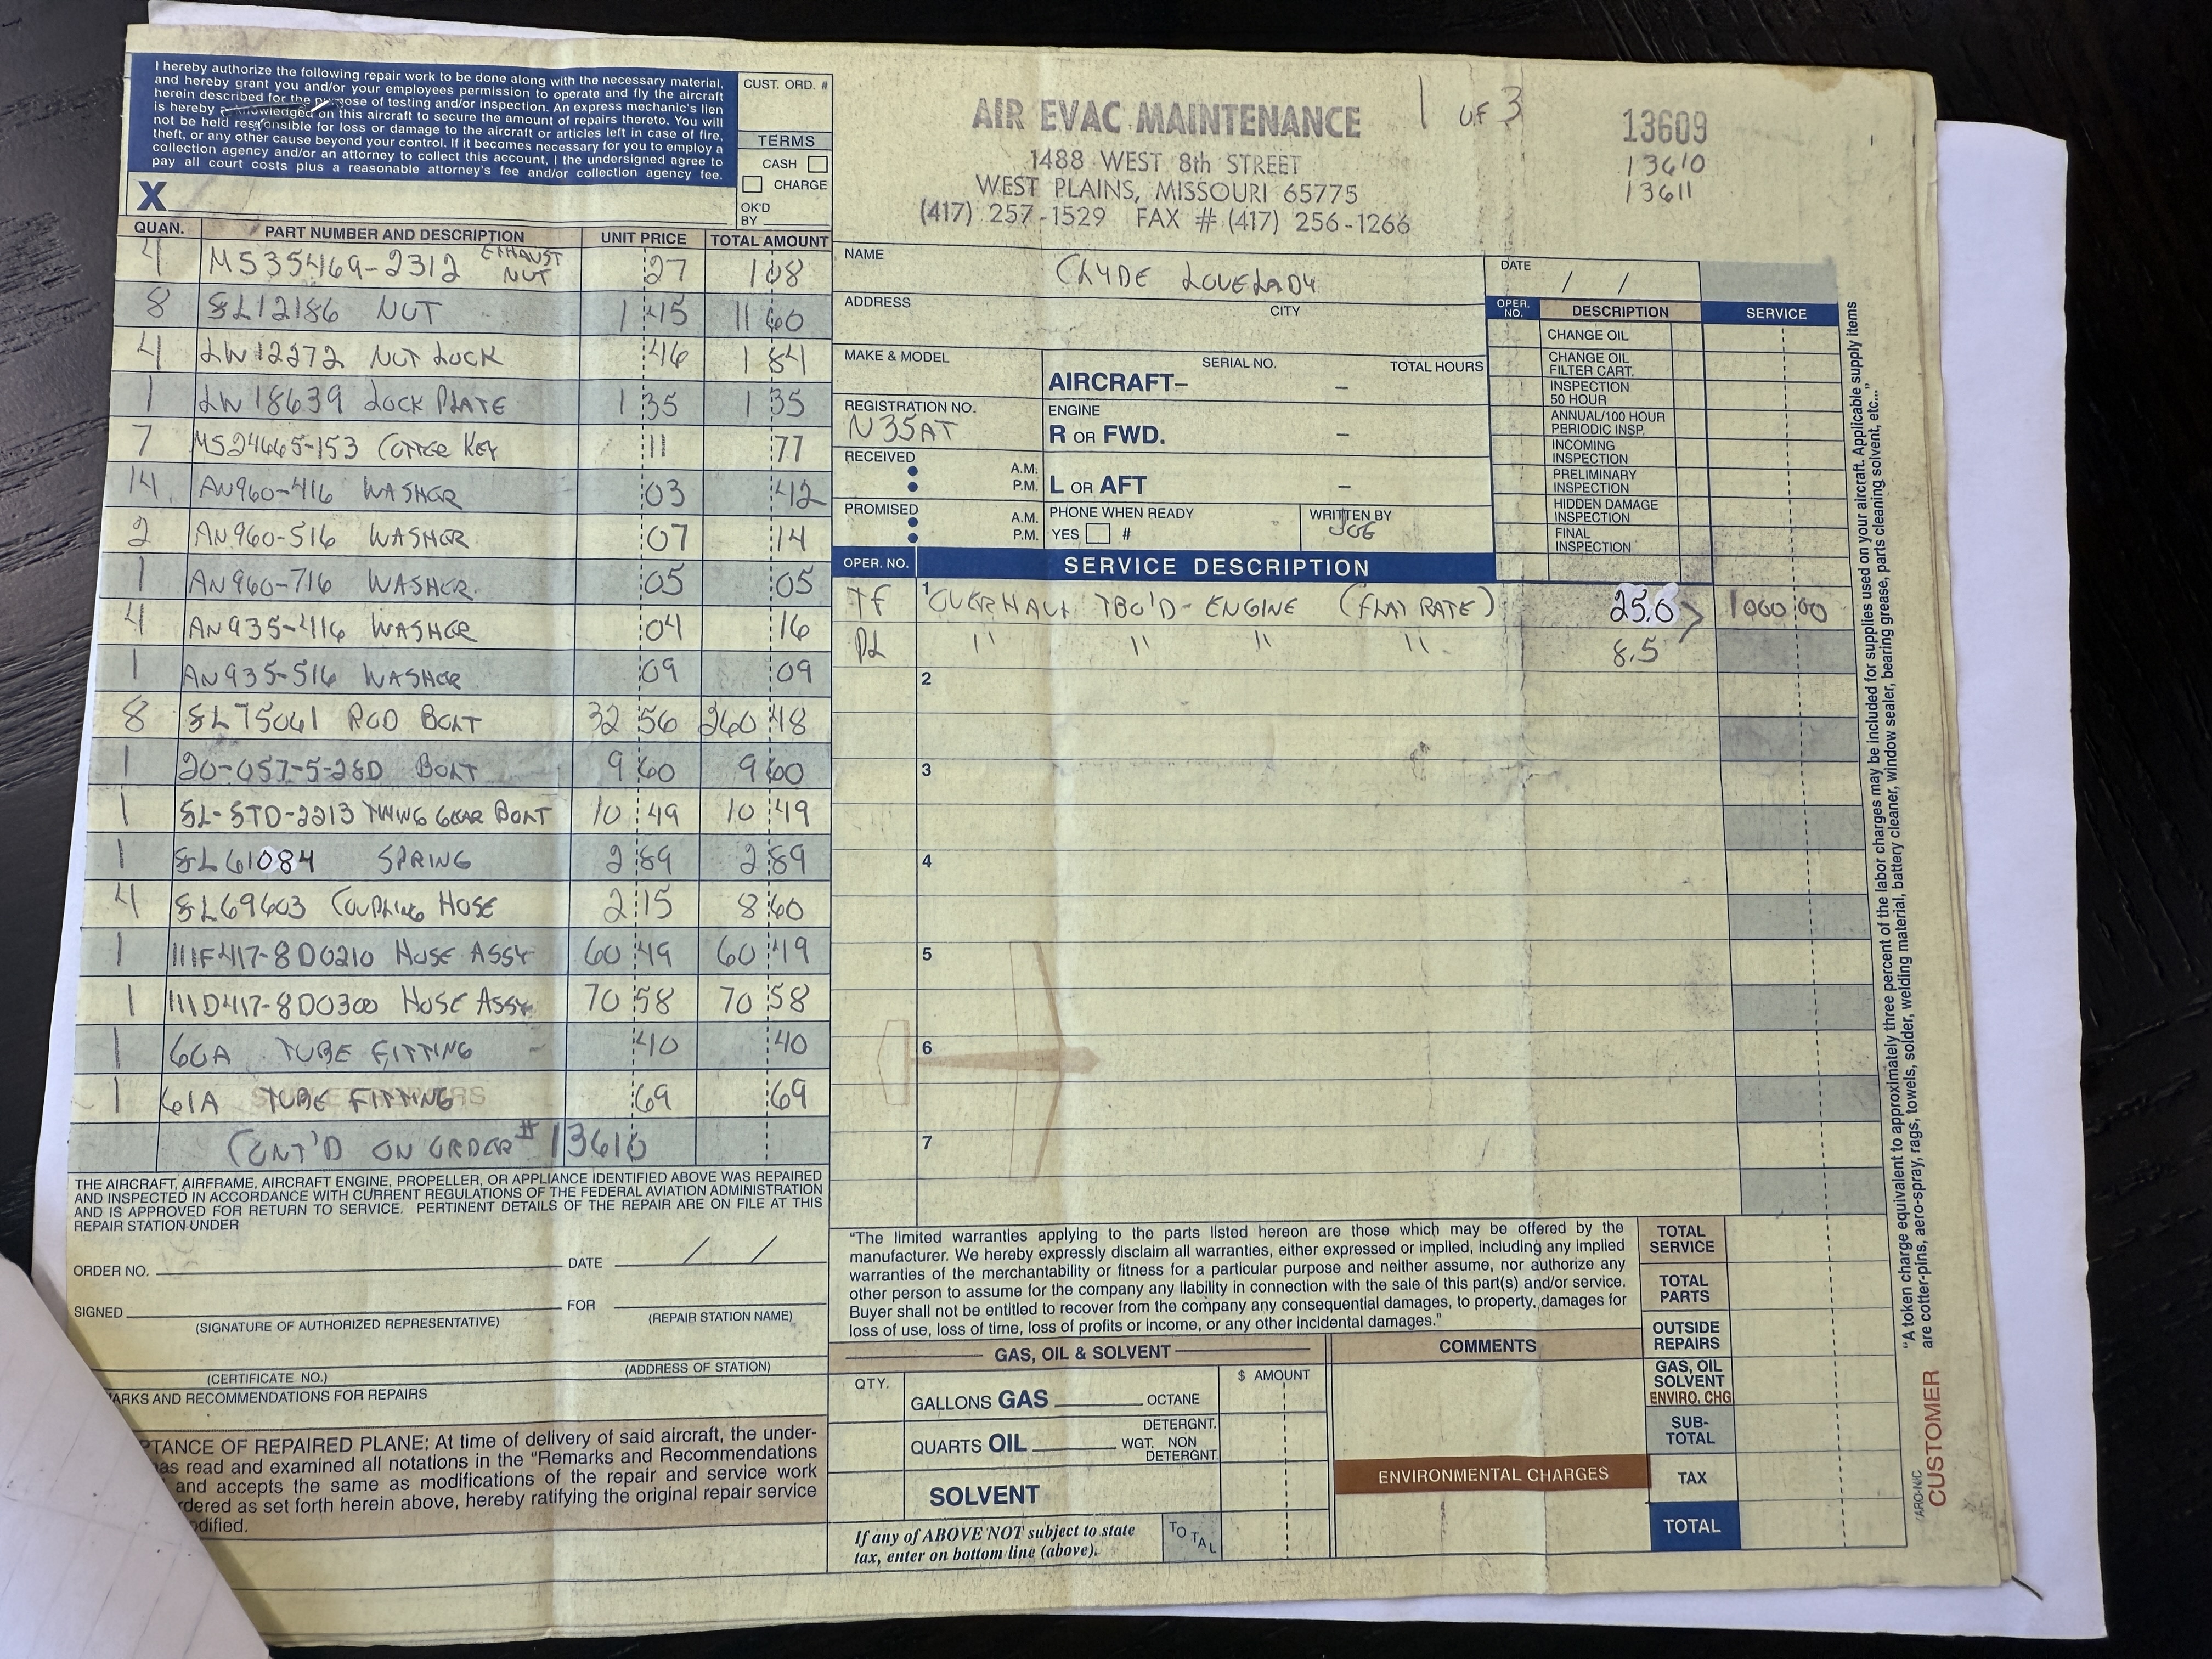 I hereby authorize the following repair work to be done along with the necessary material,
and hereby grant you and/or your employees permission to operate and fly the aircraft
herein described for the purpose of testing and/or inspection. An express mechanic's lien
is hereby acknowledged on this aircraft to secure the amount of repairs thereto. You will
not be held responsible for loss or damage to the aircraft or articles left in case of fire,
theft, or any other cause beyond your control. If it becomes necessary for you to employ a
collection agency and/or an attorney to collect this account, I the undersigned agree to
pay all court costs plus a reasonable attorney's fee and/or collection agency fee.
X
CUST. ORD. #
TERMS
CASH
CHARGE
OK'D
BY
QUAN. PART NUMBER AND DESCRIPTION UNIT PRICE TOTAL AMOUNT
4 MS35469-2312 EXHAUST NUT 27 1 08
8 SL12186 NUT 1 45 11 60
4 LW12272 NUT LOCK 46 1 84
1 LW18639 LOCK PLATE 1 35 1 35
7 MS24665-153 COTTER KEY 11 77
14 AN960-416 WASHER 03 42
2 AN960-516 WASHER 07 14
1 AN960-716 WASHER 05 05
4 AN935-416 WASHER 04 16
1 AN935-516 WASHER 09 09
8 SL75061 ROD BOLT 32 56 260 48
1 20-057-5-28D BOLT 9 60 9 60
1 SL-STD-2213 GEAR BOLT 10 49 10 49
1 SL61084 SPRING 2 89 2 89
4 SL69603 COUPLING HOSE 2 15 8 60
1 111F417-8D0210 HOSE ASSY 60 49 60 49
1 111D417-8D0300 HOSE ASSY 70 58 70 58
1 60A TUBE FITTING 40 40
1 61A TUBE FITTING 69 69
CONT'D ON ORDER # 13610
THE AIRCRAFT, AIRFRAME, AIRCRAFT ENGINE, PROPELLER, OR APPLIANCE IDENTIFIED ABOVE WAS REPAIRED
AND INSPECTED IN ACCORDANCE WITH CURRENT REGULATIONS OF THE FEDERAL AVIATION ADMINISTRATION
AND IS APPROVED FOR RETURN TO SERVICE. PERTINENT DETAILS OF THE REPAIR ARE ON FILE AT THIS
REPAIR STATION UNDER
ORDER NO. DATE / /
SIGNED FOR
(SIGNATURE OF AUTHORIZED REPRESENTATIVE) (REPAIR STATION NAME)
(CERTIFICATE NO.) (ADDRESS OF STATION)
ARKS AND RECOMMENDATIONS FOR REPAIRS
PTANCE OF REPAIRED PLANE: At time of delivery of said aircraft, the under-
as read and examined all notations in the "Remarks and Recommendations
and accepts the same as modifications of the repair and service work
rdered as set forth herein above, hereby ratifying the original repair service
odified.
AIR EVAC MAINTENANCE
1488 WEST 8th STREET
WEST PLAINS, MISSOURI 65775
(417) 257-1529 FAX # (417) 256-1266
1 OF 3
13609
13610
13611
NAME CLYDE LOVELADY
DATE / /
ADDRESS CITY
MAKE & MODEL SERIAL NO. TOTAL HOURS
AIRCRAFT– –
REGISTRATION NO. N35AT
ENGINE
R OR FWD. –
RECEIVED A.M.
P.M.
L OR AFT –
PROMISED A.M.
P.M.
PHONE WHEN READY
YES #
WRITTEN BY
OPER. NO. DESCRIPTION SERVICE
CHANGE OIL
CHANGE OIL FILTER CART.
INSPECTION 50 HOUR
ANNUAL/100 HOUR PERIODIC INSP.
INCOMING INSPECTION
PRELIMINARY INSPECTION
HIDDEN DAMAGE INSPECTION
FINAL INSPECTION
OPER. NO. SERVICE DESCRIPTION
TF 1 OVERHAUL TBO'D- ENGINE (FLAT RATE) 25.0 > 1000 00
" " " " 8.5
2
3
4
5
6
7
"The limited warranties applying to the parts listed hereon are those which may be offered by the
manufacturer. We hereby expressly disclaim all warranties, either expressed or implied, including any implied
warranties of the merchantability or fitness for a particular purpose and neither assume, nor authorize any
other person to assume for the company any liability in connection with the sale of this part(s) and/or service.
Buyer shall not be entitled to recover from the company any consequential damages, to property, damages for
loss of use, loss of time, loss of profits or income, or any other incidental damages."
GAS, OIL & SOLVENT
QTY. $ AMOUNT
GALLONS GAS OCTANE
QUARTS OIL WGT. DETERGNT. NON DETERGNT.
SOLVENT
If any of ABOVE NOT subject to state
tax, enter on bottom line (above).
TOTAL
COMMENTS
ENVIRONMENTAL CHARGES
TOTAL SERVICE
TOTAL PARTS
OUTSIDE REPAIRS
GAS, OIL SOLVENT
ENVIRO. CHG
SUB-TOTAL
TAX
TOTAL
"A token charge equivalent to approximately three percent of the labor charges may be included for supplies used on your aircraft. Applicable supply items
are cotter-pins, aero-spray, rags, towels, solder, welding material, battery cleaner, window sealer, bearing grease, parts cleaning solvent, etc..."
CUSTOMER